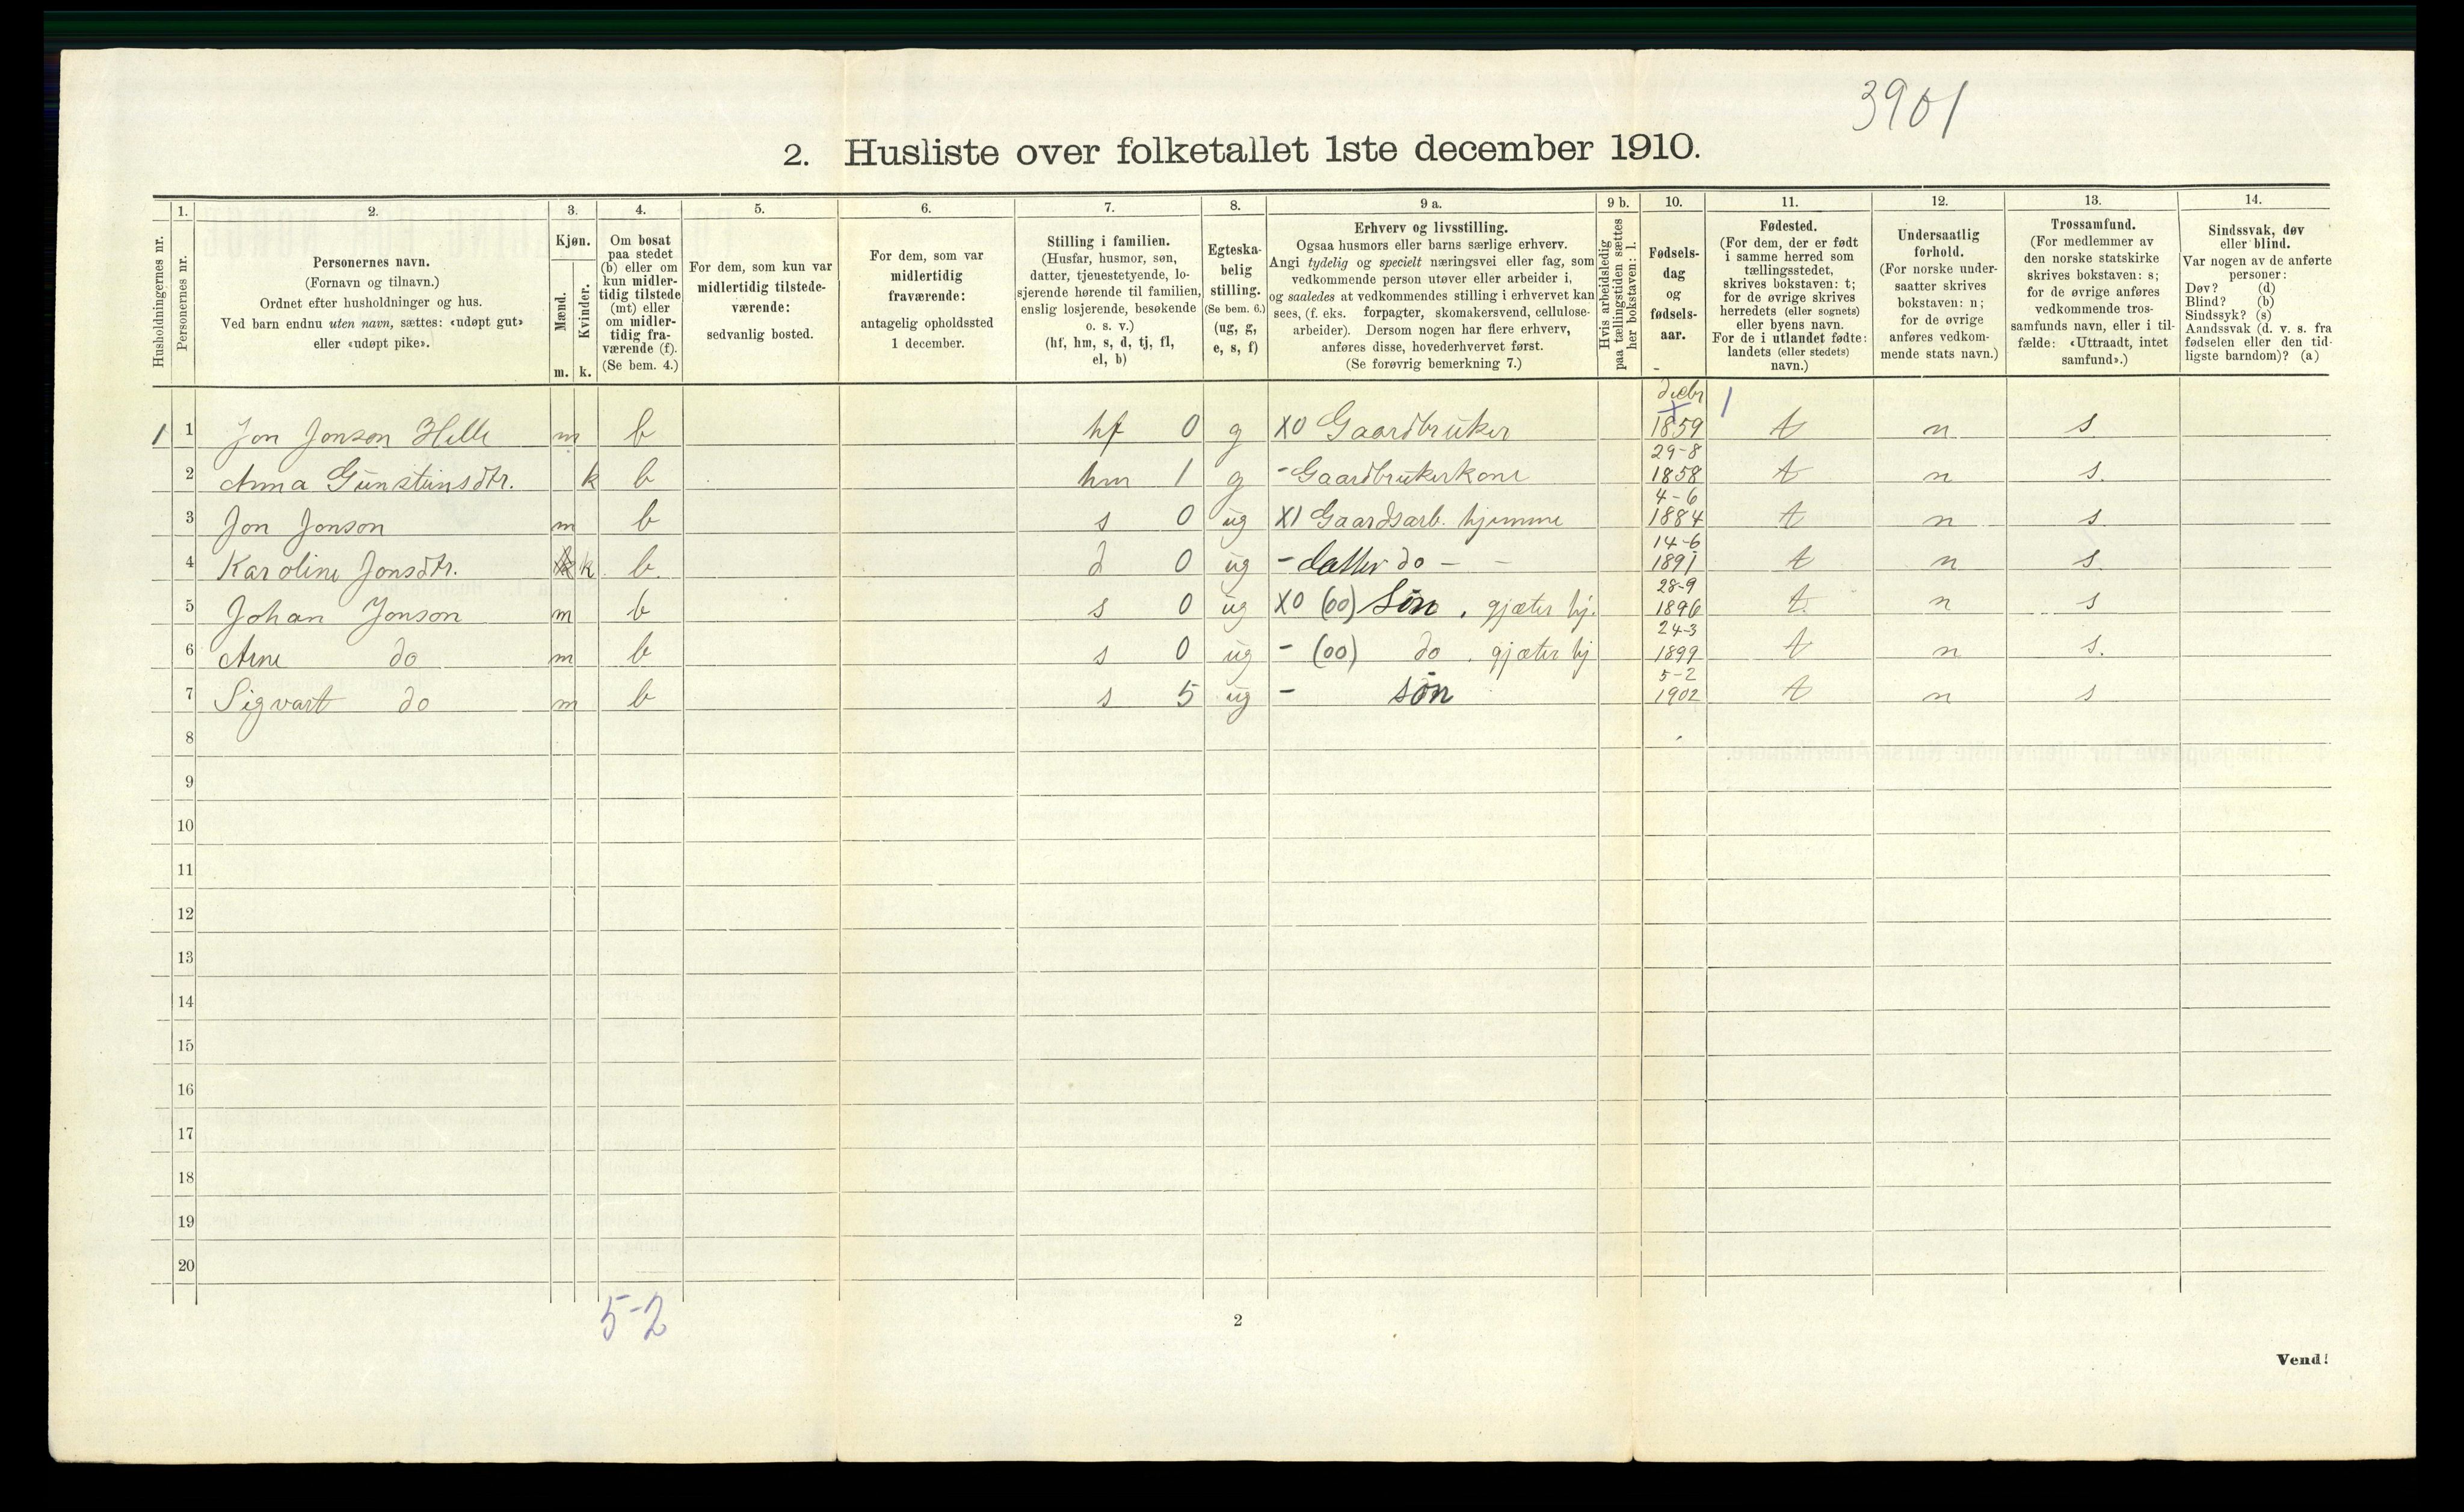 3901
2. Husliste over folketallet 1ste december 1910.
Husholdningernes nr.
1.
Personernes nr.
2.
Personernes navn.
(Fornavn og tilnavn.)
Ordnet efter husholdninger og hus.
Ved barn endnu uten navn, sættes: «udøpt gut»
eller «udøpt pike».
3.
Kjøn.
Mænd.
Kvinder.
m. k.
4.
Om bosat
paa stedet
(b) eller om
kun midler-
tidig tilstede
(mt) eller
om midler-
tidig fra-
værende (f).
(Se bem. 4.)
5.
For dem, som kun var
midlertidig tilstede-
værende:
sedvanlig bosted.
6.
For dem, som var
midlertidig
fraværende:
antagelig opholdssted
1 december.
7.
Stilling i familien.
(Husfar, husmor, søn,
datter, tjenestetyende, lo-
sjerende hørende til familien,
enslig losjerende, besøkende
o. s. v.)
(hf, hm, s, d, tj, fl,
el, b)
8.
Egteska-
belig
stilling.
(Se bem. 6.)
(ug, g,
e, s, f)
9 a.
Erhverv og livsstilling.
Ogsaa husmors eller barns særlige erhverv.
Angi tydelig og specielt næringsvei eller fag, som
vedkommende person utøver eller arbeider i,
og saaledes at vedkommendes stilling i erhvervet kan
sees, (f. eks. forpagter, skomakersvend, cellulose-
arbeider). Dersom nogen har flere erhverv,
anføres disse, hovederhvervet først.
(Se forøvrig bemerkning 7.)
9 b.
Hvis arbeidsledig
paa tællingstiden sættes
her bokstaven: l.
10.
Fødsels-
dag
og
fødsels-
aar.
11.
Fødested.
(For dem, der er født
i samme herred som
tællingsstedet,
skrives bokstaven: t;
for de øvrige skrives
herredets (eller sognets)
eller byens navn.
For de i utlandet fødte:
landets (eller stedets)
navn.)
12.
Undersaatlig
forhold.
(For norske under-
saatter skrives
bokstaven: n;
for de øvrige
anføres vedkom-
mende stats navn.)
13.
Trossamfund.
(For medlemmer av
den norske statskirke
skrives bokstaven: s;
for de øvrige anføres
vedkommende tros-
samfunds navn, eller i til-
fælde: «Uttraadt, intet
samfund».)
14.
Sindssvak, døv
eller blind.
Var nogen av de anførte
personer:
Døv? (d)
Blind? (b)
Sindssyk? (s)
Aandssvak (d. v. s. fra
fødselen eller den tid-
ligste barndom)? (a)
1 1 Jon Jonson Helle m b hf 0 g X0 Gaardbruker 1859 t n s
2 Anna Gunsteinsdtr. k b hm 1 g - Gaardbrukerkone 29-8 1858 t n s.
3 Jon Jonson m b s 0 ug X1 Gaardsarb. hjemme 4-6 1884 t n s
4 Karoline Jonsdtr. k b. d 0 ug - datter do - - 14-6 1891 t n s.
5 Johan Jonson m b s 0 ug X0 (00) Søn, gjæter hj. 28-9 1896 t n s
6 Arne do m b s 0 ug - (00) do, gjæter hj 24-3 1899 t n s.
7 Sigvart do m b s 5 ug - søn 5-2 1902 t n s
8
9
10
11
12
13
14
15
16
17
18
19
20
5-2
2
Vend!